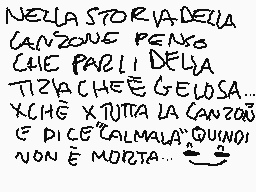 NELLA STORIA DELLA
CANZONE PENSO
CHE PARLI DELLA
TIZIA CHE È GELOSA...
XCHÈ X TUTTA LA CANZON
E DICE "CALMALA" QUINDI
NON È MORTA...